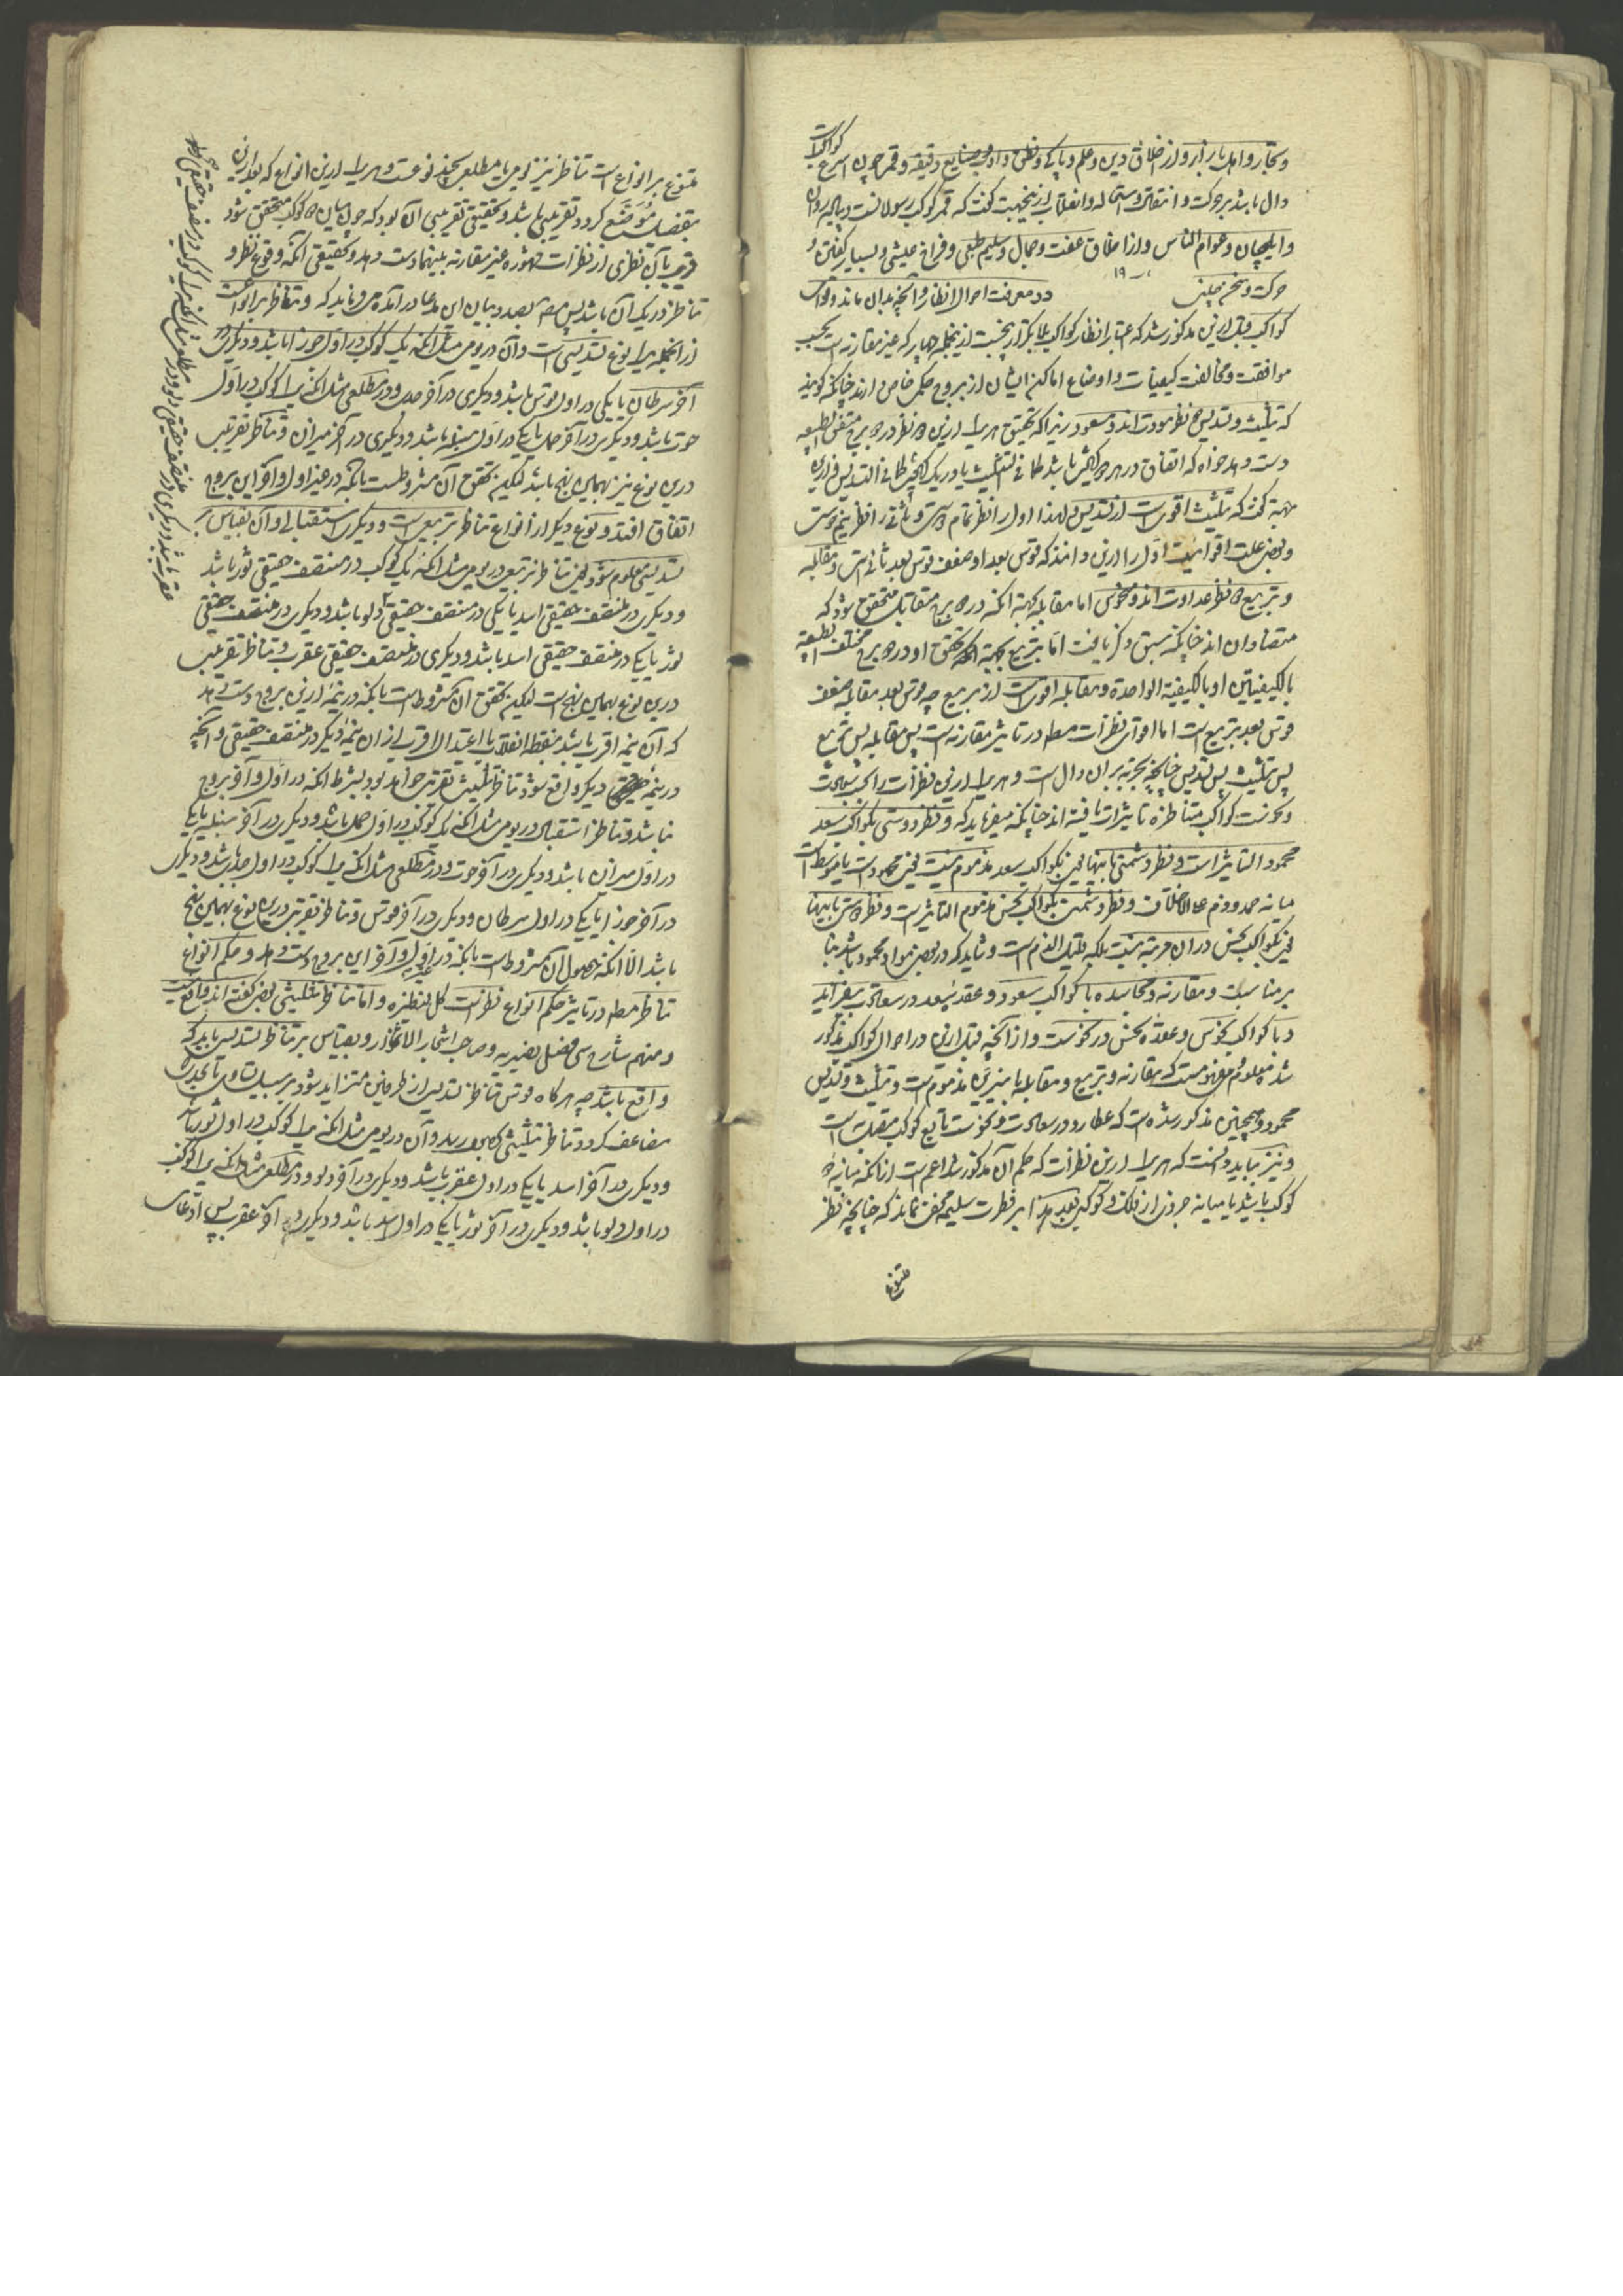 و تجار و اهل بازار و از اخلاق دین و علم و پاکی و نطق و ادب و صنایع دقیقه و قمر چون اسرع کواکبست
دال باشد بر حرکت و انتقال و استحاله و انقلاب ازینجهت گفته که قمر کوکب رسولانست و پیاده روان
و ایلچیان و عوام الناس و از اخلاق عفت و جمال و سلیم طبعی و فراخ عیشی و بسیار گفتن و
حرکت و سخن چینی ۱۹ در معرفت احوال انظار و آنچه بدان ماند
کواکب قبل ازین مذکور شد که اعتبار انظار کواکب با یکدیگر از پنجست ازینجمله چهار که غیر مقارنه است بحسب
موافقت و مخالفت کیفیات و اوضاع اماکن ایشان از بروج حکمی خاص دارند چنانکه گویند
که تثلیث و تسدیس دو نظر مودت اند و مسعود زیرا که تحقیق هر یک ازین دو نظر در دو برج متفق الطبیعه
دست دهد خواه که اتفاق در هر دو کیفیت باشد کما فی التثلیث یا در یک کیفیت کما فی التسدیس و ازین
جهة گفته که تثلیث اقوی است از تسدیس و لهذا اول را نظر تمام دوستی و ثانی را نظر نیم دوستی
و بعضی علت اقوائیت اول را ازین دانند که قوس بعد او ضعف قوس بعد ثانی است و مقابله
و تربیع دو نظر عداوت اند و منحوس اما مقابله بجهة آنکه در دو برج متقابل متحقق شود که
متضادان اند چنانکه سبق ذکر یافت اما تربیع بجهة آنکه تحقق او در دو برج مختلف الطبیعه
بالکیفیتین او بالکیفیة الواحدة و مقابله اقوی است از تربیع چه قوس بعد مقابله ضعف
قوس بعد تربیع است اما اقوای نظرات مطلقا در تاثیر مقارنه است پس مقابله پس تربیع
پس تثلیث پس تسدیس چنانچه تجربه بر آن دال است و هر یک ازین نظرات را بحسب سعادت
و نحوست کواکب متناظره تاثیرات یافته اند چنانکه میفرماید که و نظر دوستی بکواکب سعد
محمود التاثیر است و نظر دشمنی بکواکب سعد مذموم نیست
میانه حمد و ذم علی الاختلاف و نظر دشمنی بکواکب نحس مذموم التاثیر است و نظر دوستی
بکواکب نحس در آن مرتبه نیست بلکه قلیل الذم است و شاید که در بعضی مواد محمود باشد بنا
بر مناسبات و مقارنه و مجاسده با کواکب سعود و عقده سعد در سعادت بیفزاید
و با کواکب نحوس و عقدة نحس در نحوست و از آنچه قبل ازین در احوال کواکب مذکور
شد معلوم و مفهوم است که مقارنه و تربیع و مقابله با نیرین مذموم است و تثلیث و تسدیس
محمود و همچنین مذکور شده است که عطارد در سعادت و نحوست تابع کوکب متصل به است
و نیز بباید دانست که هر یک ازین نظرات که حکم آن مذکور شد اعم است از آنکه میانه دو
کوکب باشد یا میانه جزوی از فلک و کوکبی بعد هذا بر فطرت سلیمه مخفی نماند که چنانچه نظر
متنوع
متنوع بر انواع است تناظر نیز یومی یا مطلعی بچند نوعست و هر یک ازین انواع که بعد ازین
بتفصیل متضح گردد تقریبی باشد و تحقیقی تقریبی آن بود که چون میان دو کوکب متحقق شود
قریب بآن نظری از نظرات مشهوره غیر مقارنه بینهما دست دهد و تحقیقی آنکه وقوع نظر و
تناظر در یک آن باشد پس بصدد بیان این مدعا در آمده میفرماید که و تناظر بر انواعست
از آنجمله یک نوع تسدیسی است و آن در یومی مثل آنکه یک کوکب در اول جوزا باشد و دیگری در
آخر سرطان یا یکی در اول قوس باشد و دیگری در آخر جدی و در مطلعی مثل آنکه یک کوکب در اول
حوت باشد و دیگری در آخر حمل یا یکی در اول سنبله باشد و دیگری در آخر میزان و تناظر تقریبی
درین نوع نیز بهمین نهج باشد لیکن تحقق آن مشروطست بآنکه در غیر اول و آخر این بروج
اتفاق افتد و نوع دیگر از انواع تناظر تربیعی است و دیگری استقبالی و آن بقیاس بر
تسدیسی معلوم شود یعنی تناظر تربیعی در یومی مثل آنکه یک کوکب در منتصف حقیقی ثور باشد
و دیگری در منتصف حقیقی اسد یا یکی در منتصف حقیقی دلو باشد و دیگری در منتصف حقیقی
ثور یا یکی در منتصف حقیقی اسد باشد و دیگری در منتصف حقیقی عقرب و تناظر تقریبی
درین نوع بهمین نهج است لیکن تحقق آن مشروط است بآنکه در نیمه ازین بروج دست دهد
که آن نیمه اقرب باشد بنقطه انقلاب یا اعتدال اقرب از آن نیمه دیگر در منتصف حقیقی و آنچه
در نیمه دیگر واقع شود تناظر تثلیث تقریبی خواهد بود بشرط آنکه در اول و آخر بروج
نباشد و تناظر استقبالی در یومی مثل آنکه یک کوکب در اول حمل باشد و دیگری در آخر سنبله یا یکی
در اول میزان باشد و دیگری در آخر حوت و در مطلعی مثل آنکه یک کوکب در اول جدی باشد و دیگری
در آخر جوزا یا یکی در اول سرطان و دیگری در آخر قوس و تناظر تقریبی درین نوع بهمین نهج
باشد الا آنکه حصول آن مشروط است بآنکه در غیر اول و آخر این بروج دست دهد و حکم انواع
تناظر مطلقا در تاثیر حکم انواع نظر است کل لنظیره و اما تناظر تثلیثی بعضی گفته اند واقع نیست
و منهم شارح سی فصل نصیریه و صاحب اشجار الاثمار و بقیاس بر تناظر تسدیس باید که
واقع باشد چه هر گاه قوس تناظر تسدیس از طرفین متزاید شود بر سبیل تساوی تا بحدی که
مضاعف گردد تناظر تثلیثی بحصول رسد و آن در یومی مثل آنکه یک کوکب در اول ثور باشد
و دیگری در آخر اسد یا یکی در اول عقرب باشد و دیگری در آخر دلو و در مطلعی مثل آنکه یک کوکب
در اول دلو باشد و دیگری در آخر ثور یا یکی در اول اسد باشد و دیگری در آخر عقرب پس ادعای